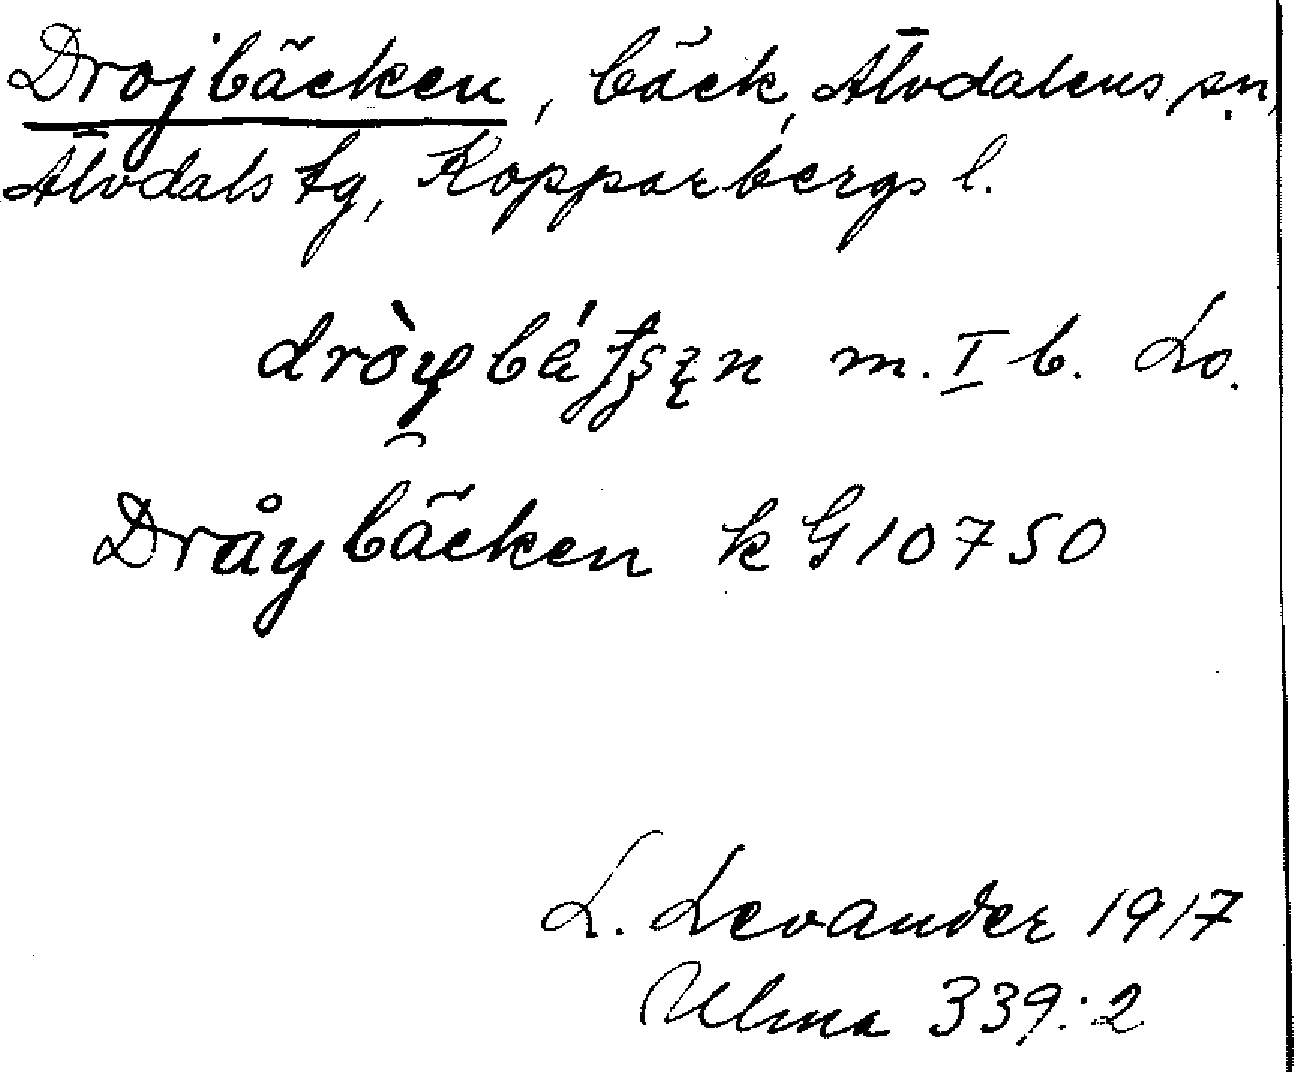 Drojbäcken, bäck, Älvdalens sn,
Älvdals tg, Kopparbergs l.
m. I b. Lo.
Dråybäcken k G 10750
L. Levander 1917
Ulma 339:2